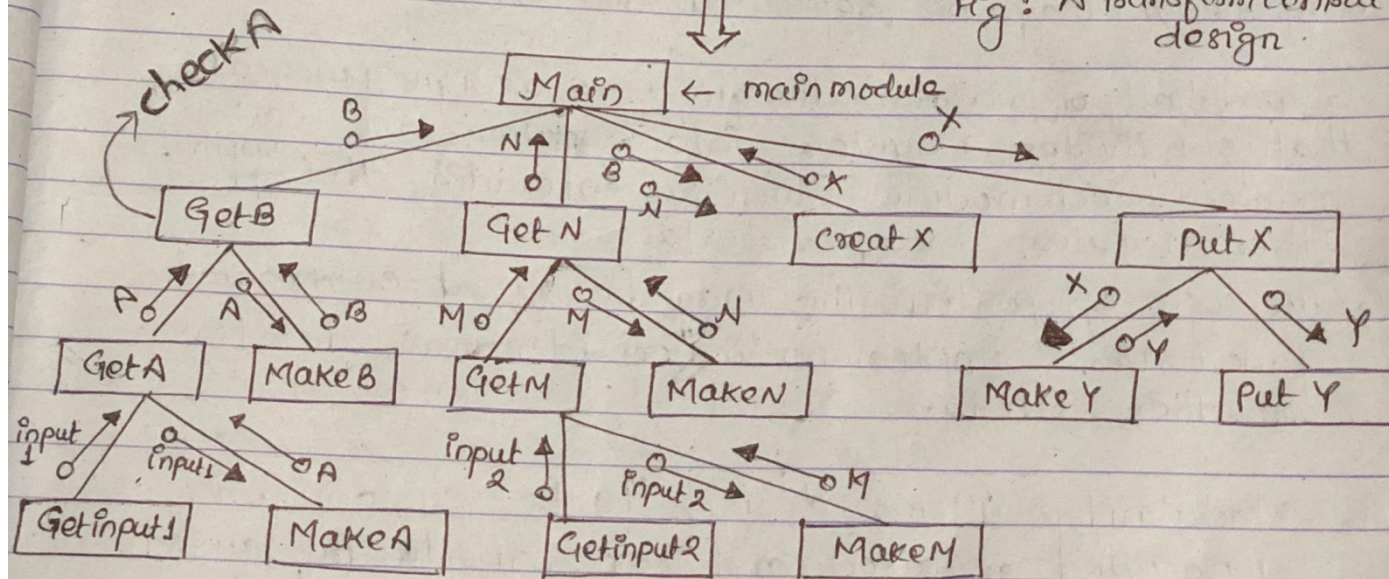 Fig: A transform central
design.
check A
Main ← main module
B
N
B
N
X
X
Get B
Get N
Creat X
Put X
A
A
B
M
M
N
X
Y
Y
Get A
Make B
Get M
Make N
Make Y
Put Y
input
1
input1
A
input
2
input 2
M
Getinput1
Make A
Getinput2
Make M